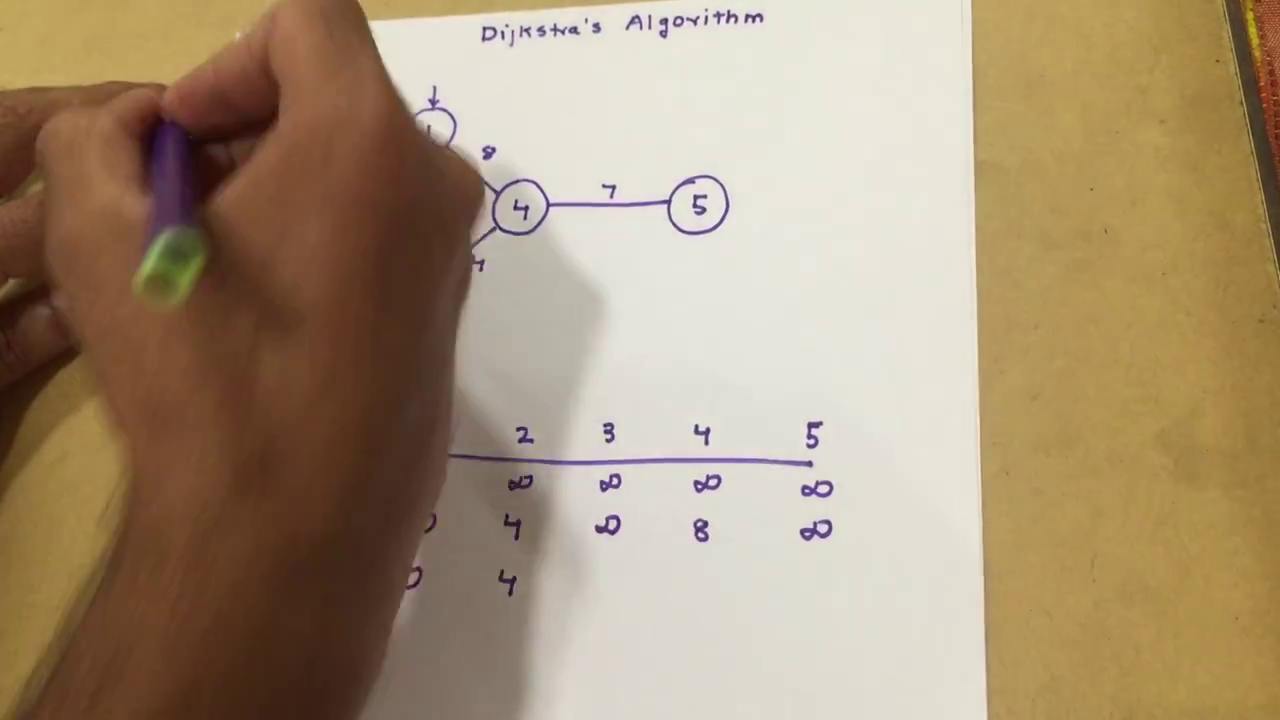 Dijkstra's Algorithm
1
8
4 7 5
4
2 3 4 5
∞ ∞ ∞ ∞
0 4 ∞ 8 ∞
0 4